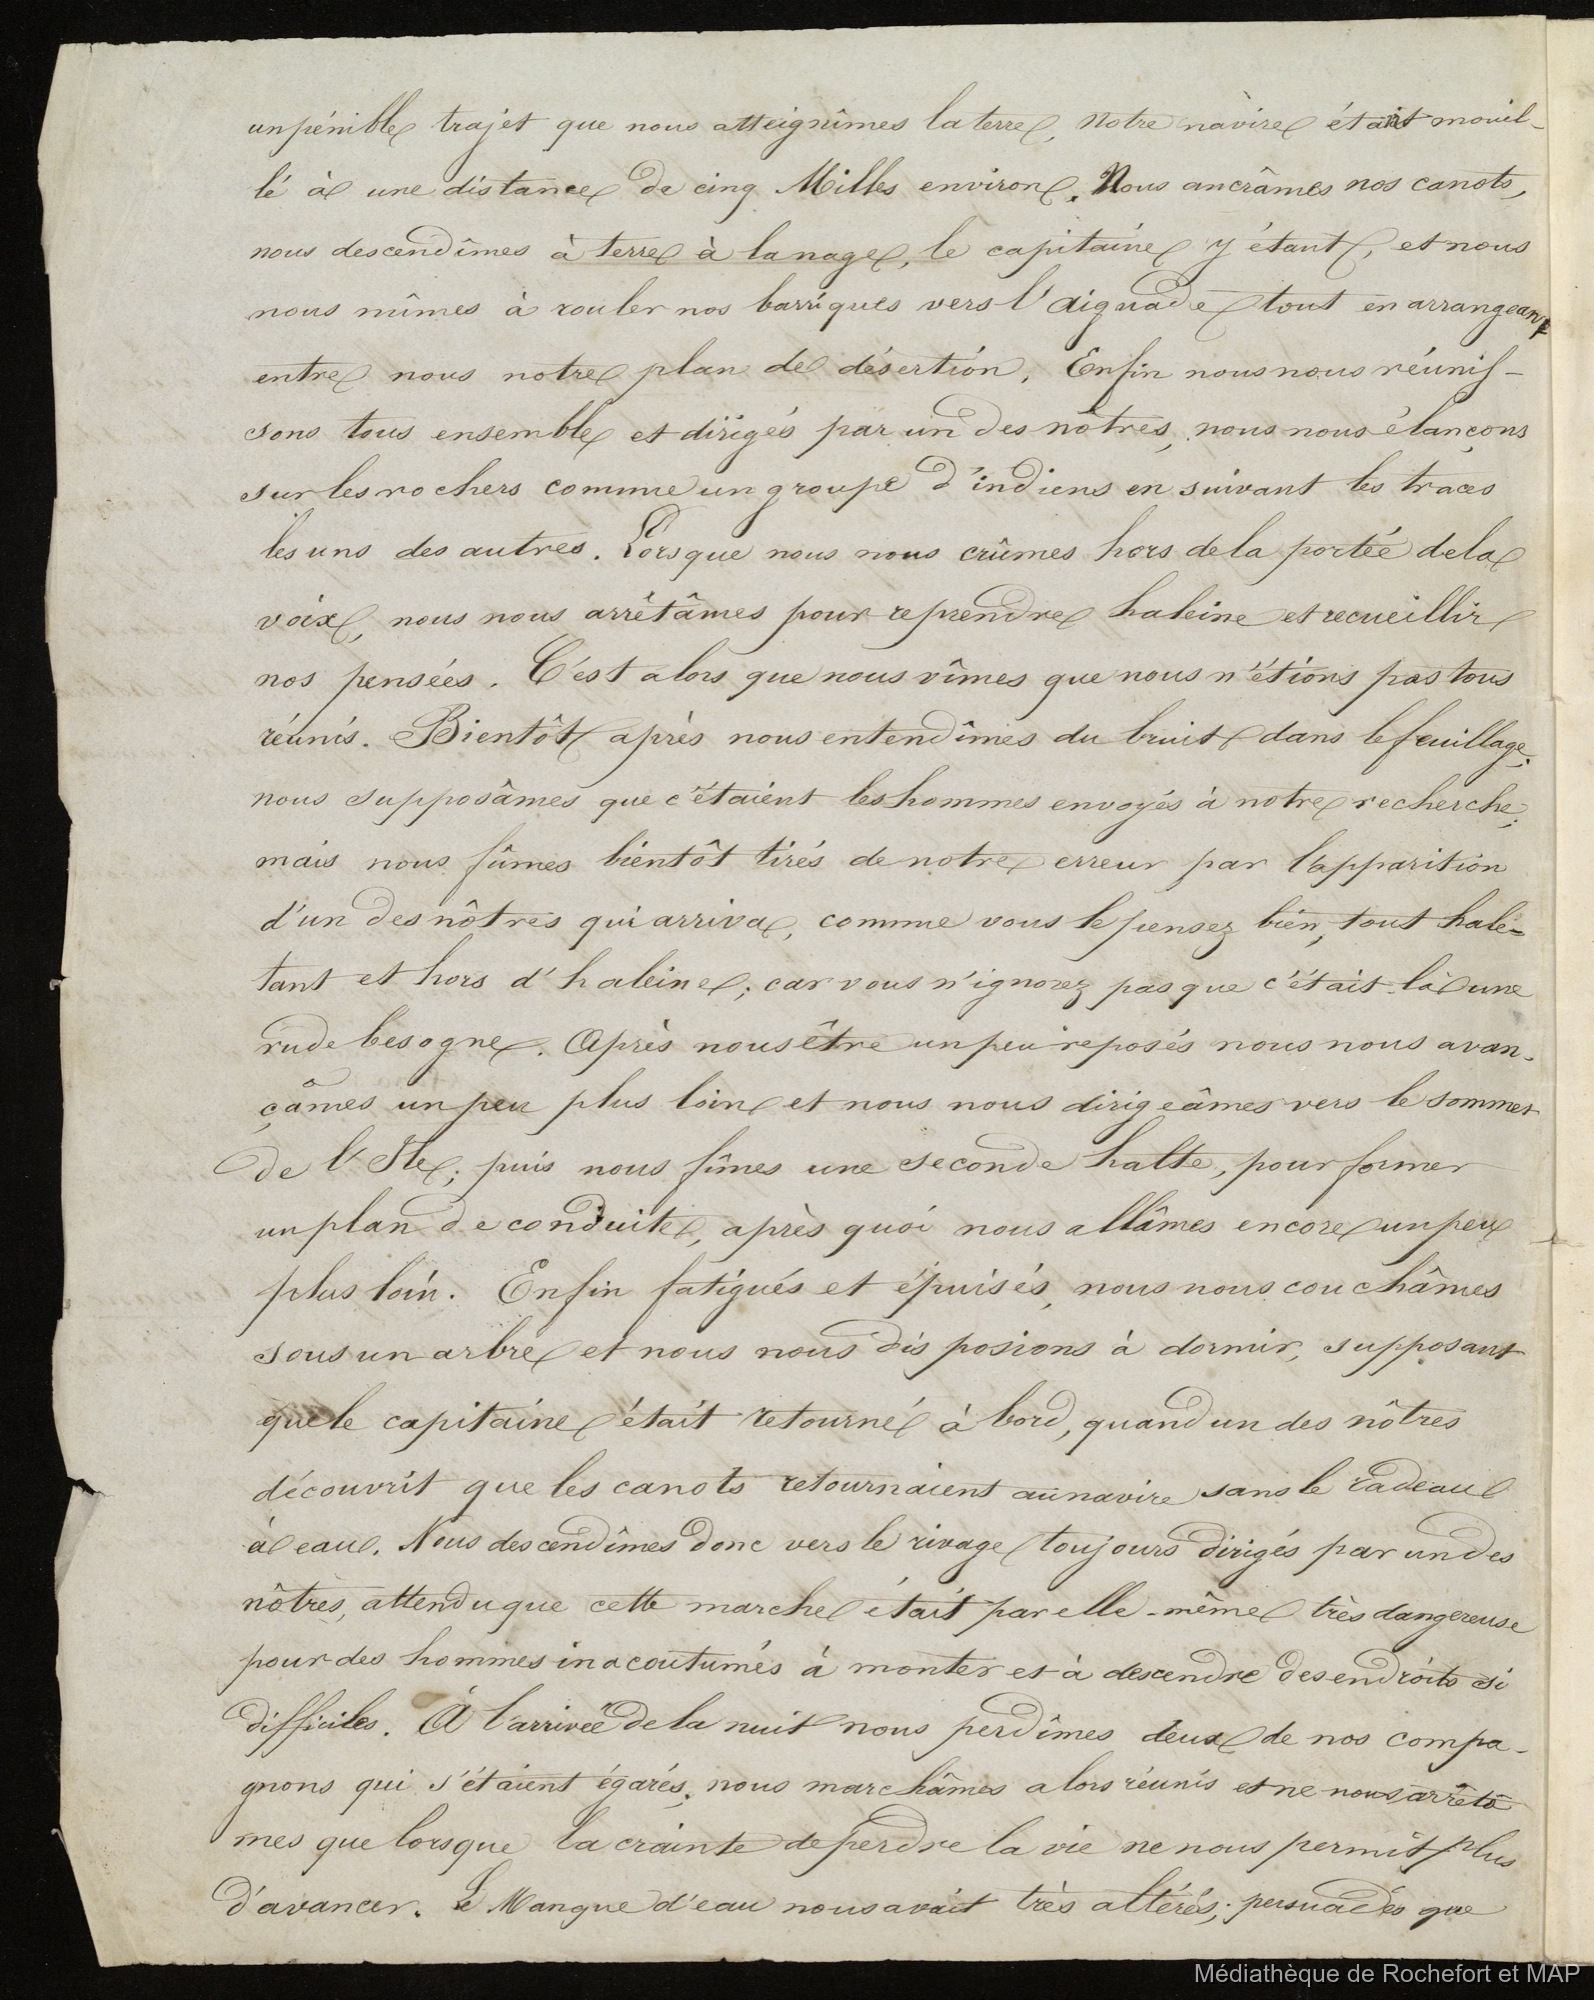 un pénible trajet que nous atteignîmes la terre, notre navire étant mouil-
lé à une distance de cinq Milles environ. Nous ancrâmes nos canots,
nous descendîmes à terre à la nage, le capitaine y étant, et nous
nous mîmes à rouler nos barriques vers l'aiguade tout en arrangeant
entre nous notre plan de désertion. Enfin nous nous réunis-
sons tous ensemble et dirigés par un des nôtres, nous nous élançons
sur les rochers comme un groupe d'indiens en suivant les traces
les uns des autres. Lorsque nous nous crûmes hors de la portée de la
voix, nous nous arrêtâmes pour reprendre haleine et recueillir
nos pensées. C'est alors que nous vîmes que nous n'étions pas tous
réunis. Bientôt après nous entendîmes du bruit dans le feuillage;
nous supposâmes que c'étaient les hommes envoyés à notre recherche;
mais nous fûmes bientôt tirés de notre erreur par l'apparition
d'un des nôtres qui arriva, comme vous le pensez bien, tout hale-
tant et hors d'haleine; car vous n'ignorez pas que c'était là une
rude besogne. Après nous être un peu reposés nous nous avan-
çâmes un peu plus loin et nous nous dirigeâmes vers le sommet
de l'Ile; puis nous fîmes une seconde halte, pour former
un plan de conduite, après quoi nous allâmes encore un peu
plus loin. Enfin fatigués et épuisés, nous nous couchâmes
sous un arbre et nous nous disposions à dormir, supposant
que le capitaine était retourné à bord, quand un des nôtres
découvrit que les canots retournaient au navire sans le radeau
à eau. Nous descendîmes donc vers le rivage toujours dirigés par un des
nôtres, attendu que cette marche était par elle-même très dangereuse
pour des hommes inacoutumés à monter et à descendre des endroits si
difficiles. À l'arrivée de la nuit nous perdîmes deux de nos compa-
gnons qui s'étaient égarés, nous marchâmes alors réunis et ne nous arrêtâ
mes que lorsque la crainte de perdre la vie ne nous permit plus
d'avancer. Le Manque d'eau nous avait très altérés; persuadés que
Médiathèque de Rochefort et MAP